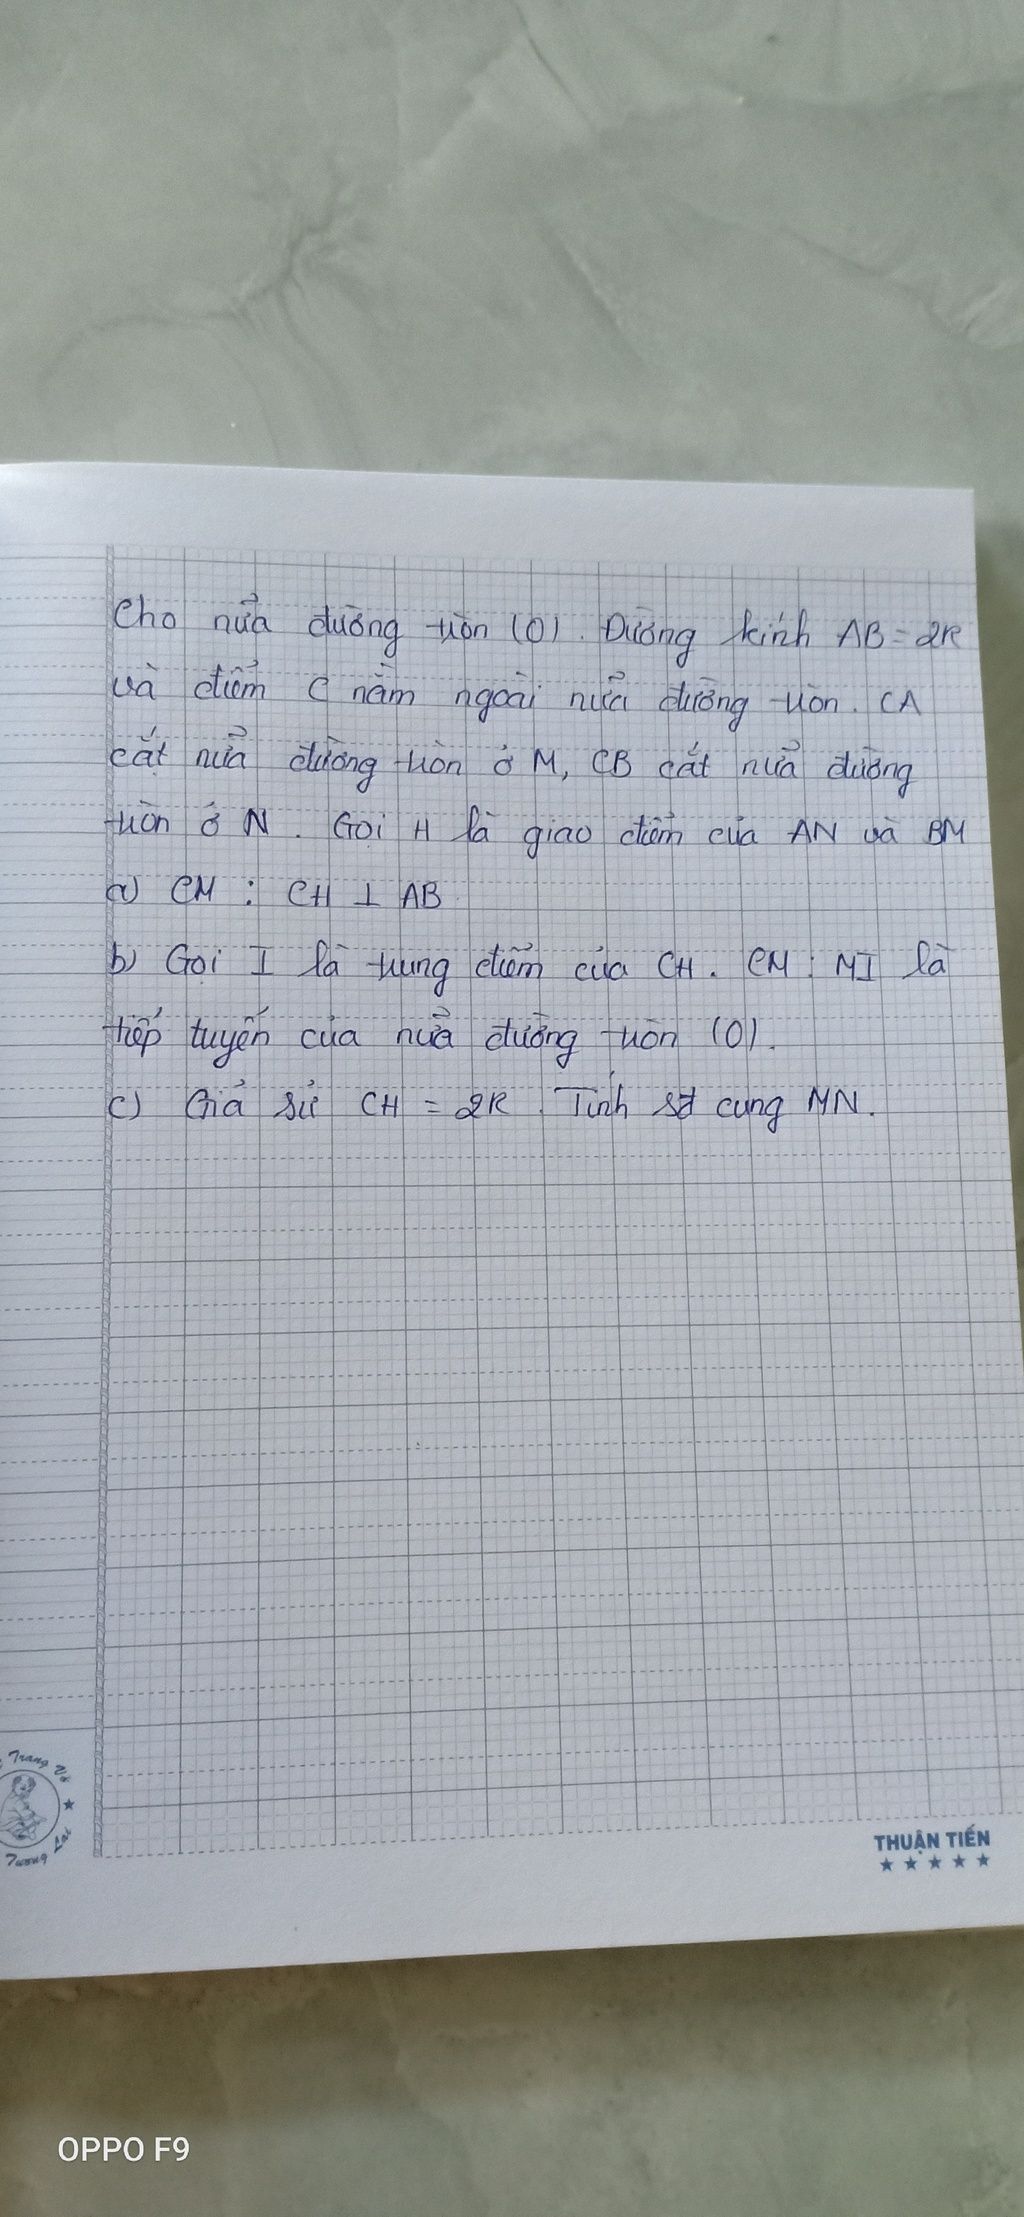 Cho nửa đường tròn (O). Đường kính AB = 2R
và điểm C nằm ngoài nửa đường tròn. CA
cắt nửa đường tròn ở M, CB cắt nửa đường
tròn ở N. Gọi H là giao điểm của AN và BM
a) CM : CH ⊥ AB
b) Gọi I là trung điểm của CH. CM : MI là
tiếp tuyến của nửa đường tròn (O).
c) Giả sử CH = 2R. Tính sđ cung MN.
Trang Vở
Tương Lai
THUẬN TIẾN
OPPO F9